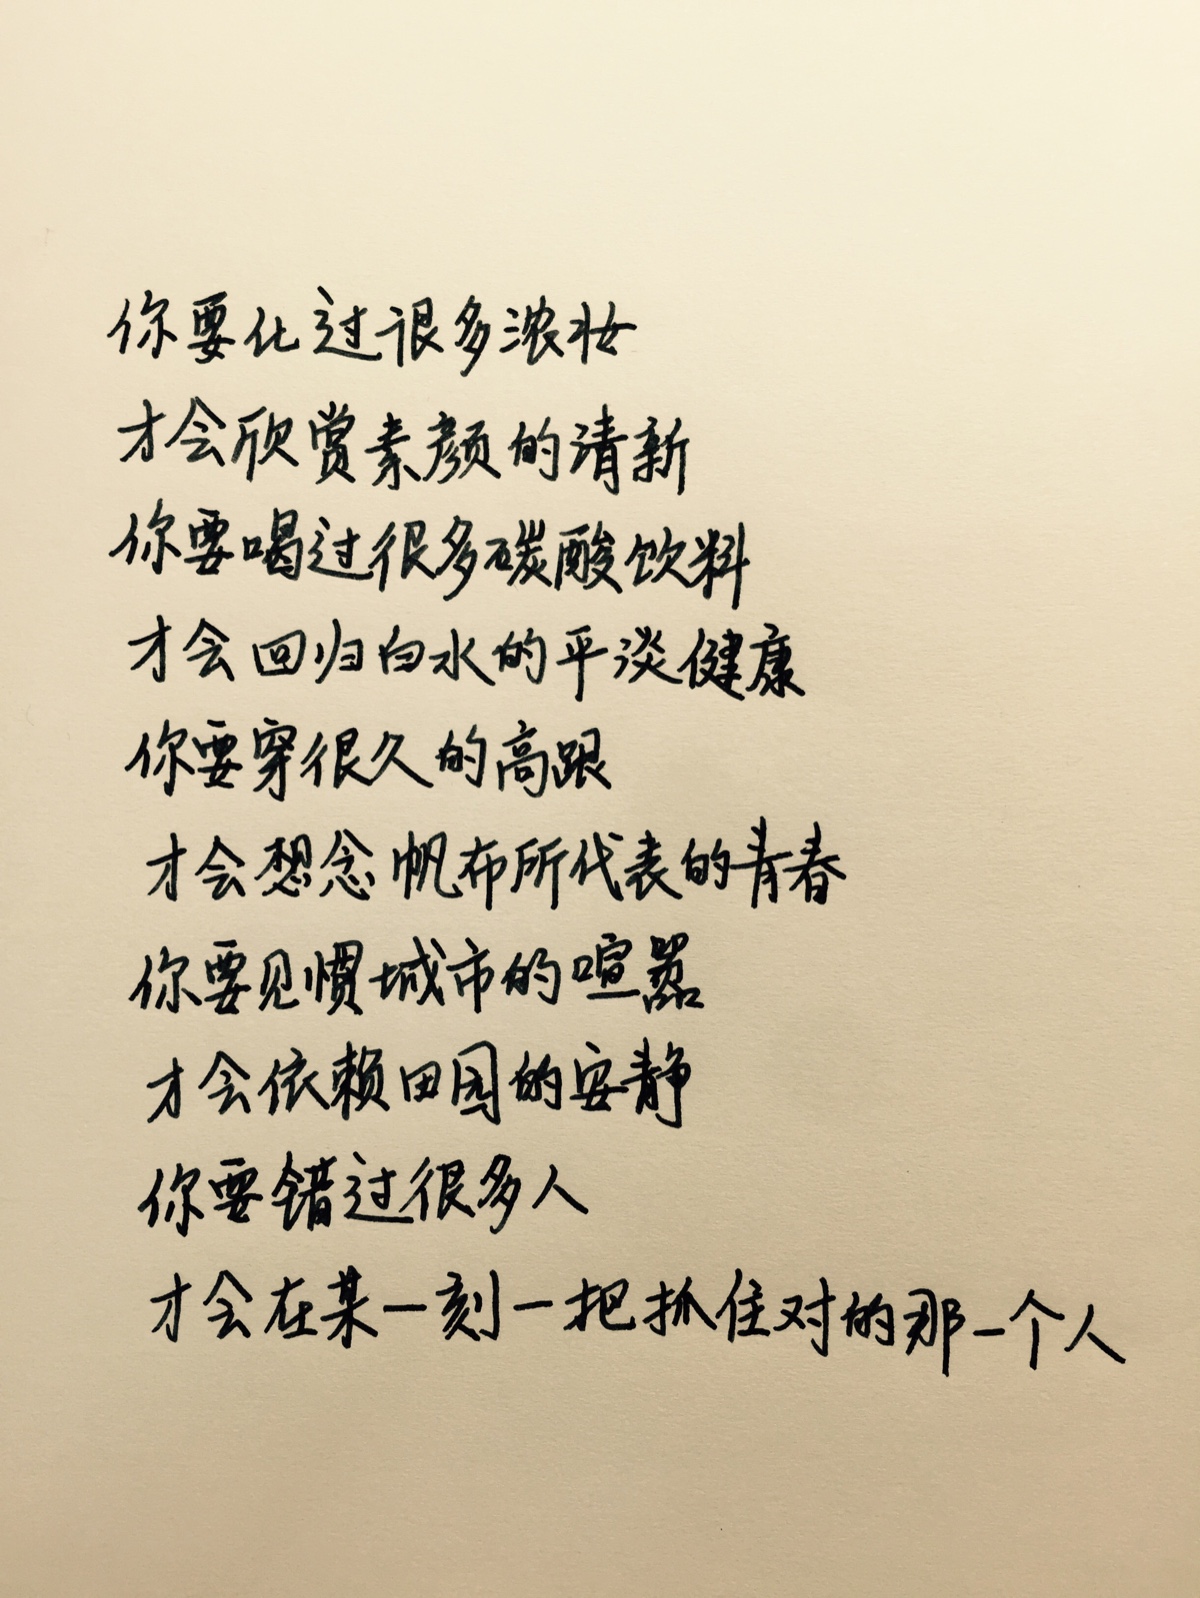 你要化过很多浓妆
才会欣赏素颜的清新
你要喝过很多碳酸饮料
才会回归白水的平淡健康
你要穿很久的高跟
才会想念帆布所代表的青春
你要见惯城市的喧嚣
才会依赖田园的安静
你要错过很多人
才会在某一刻一把抓住对的那一个人